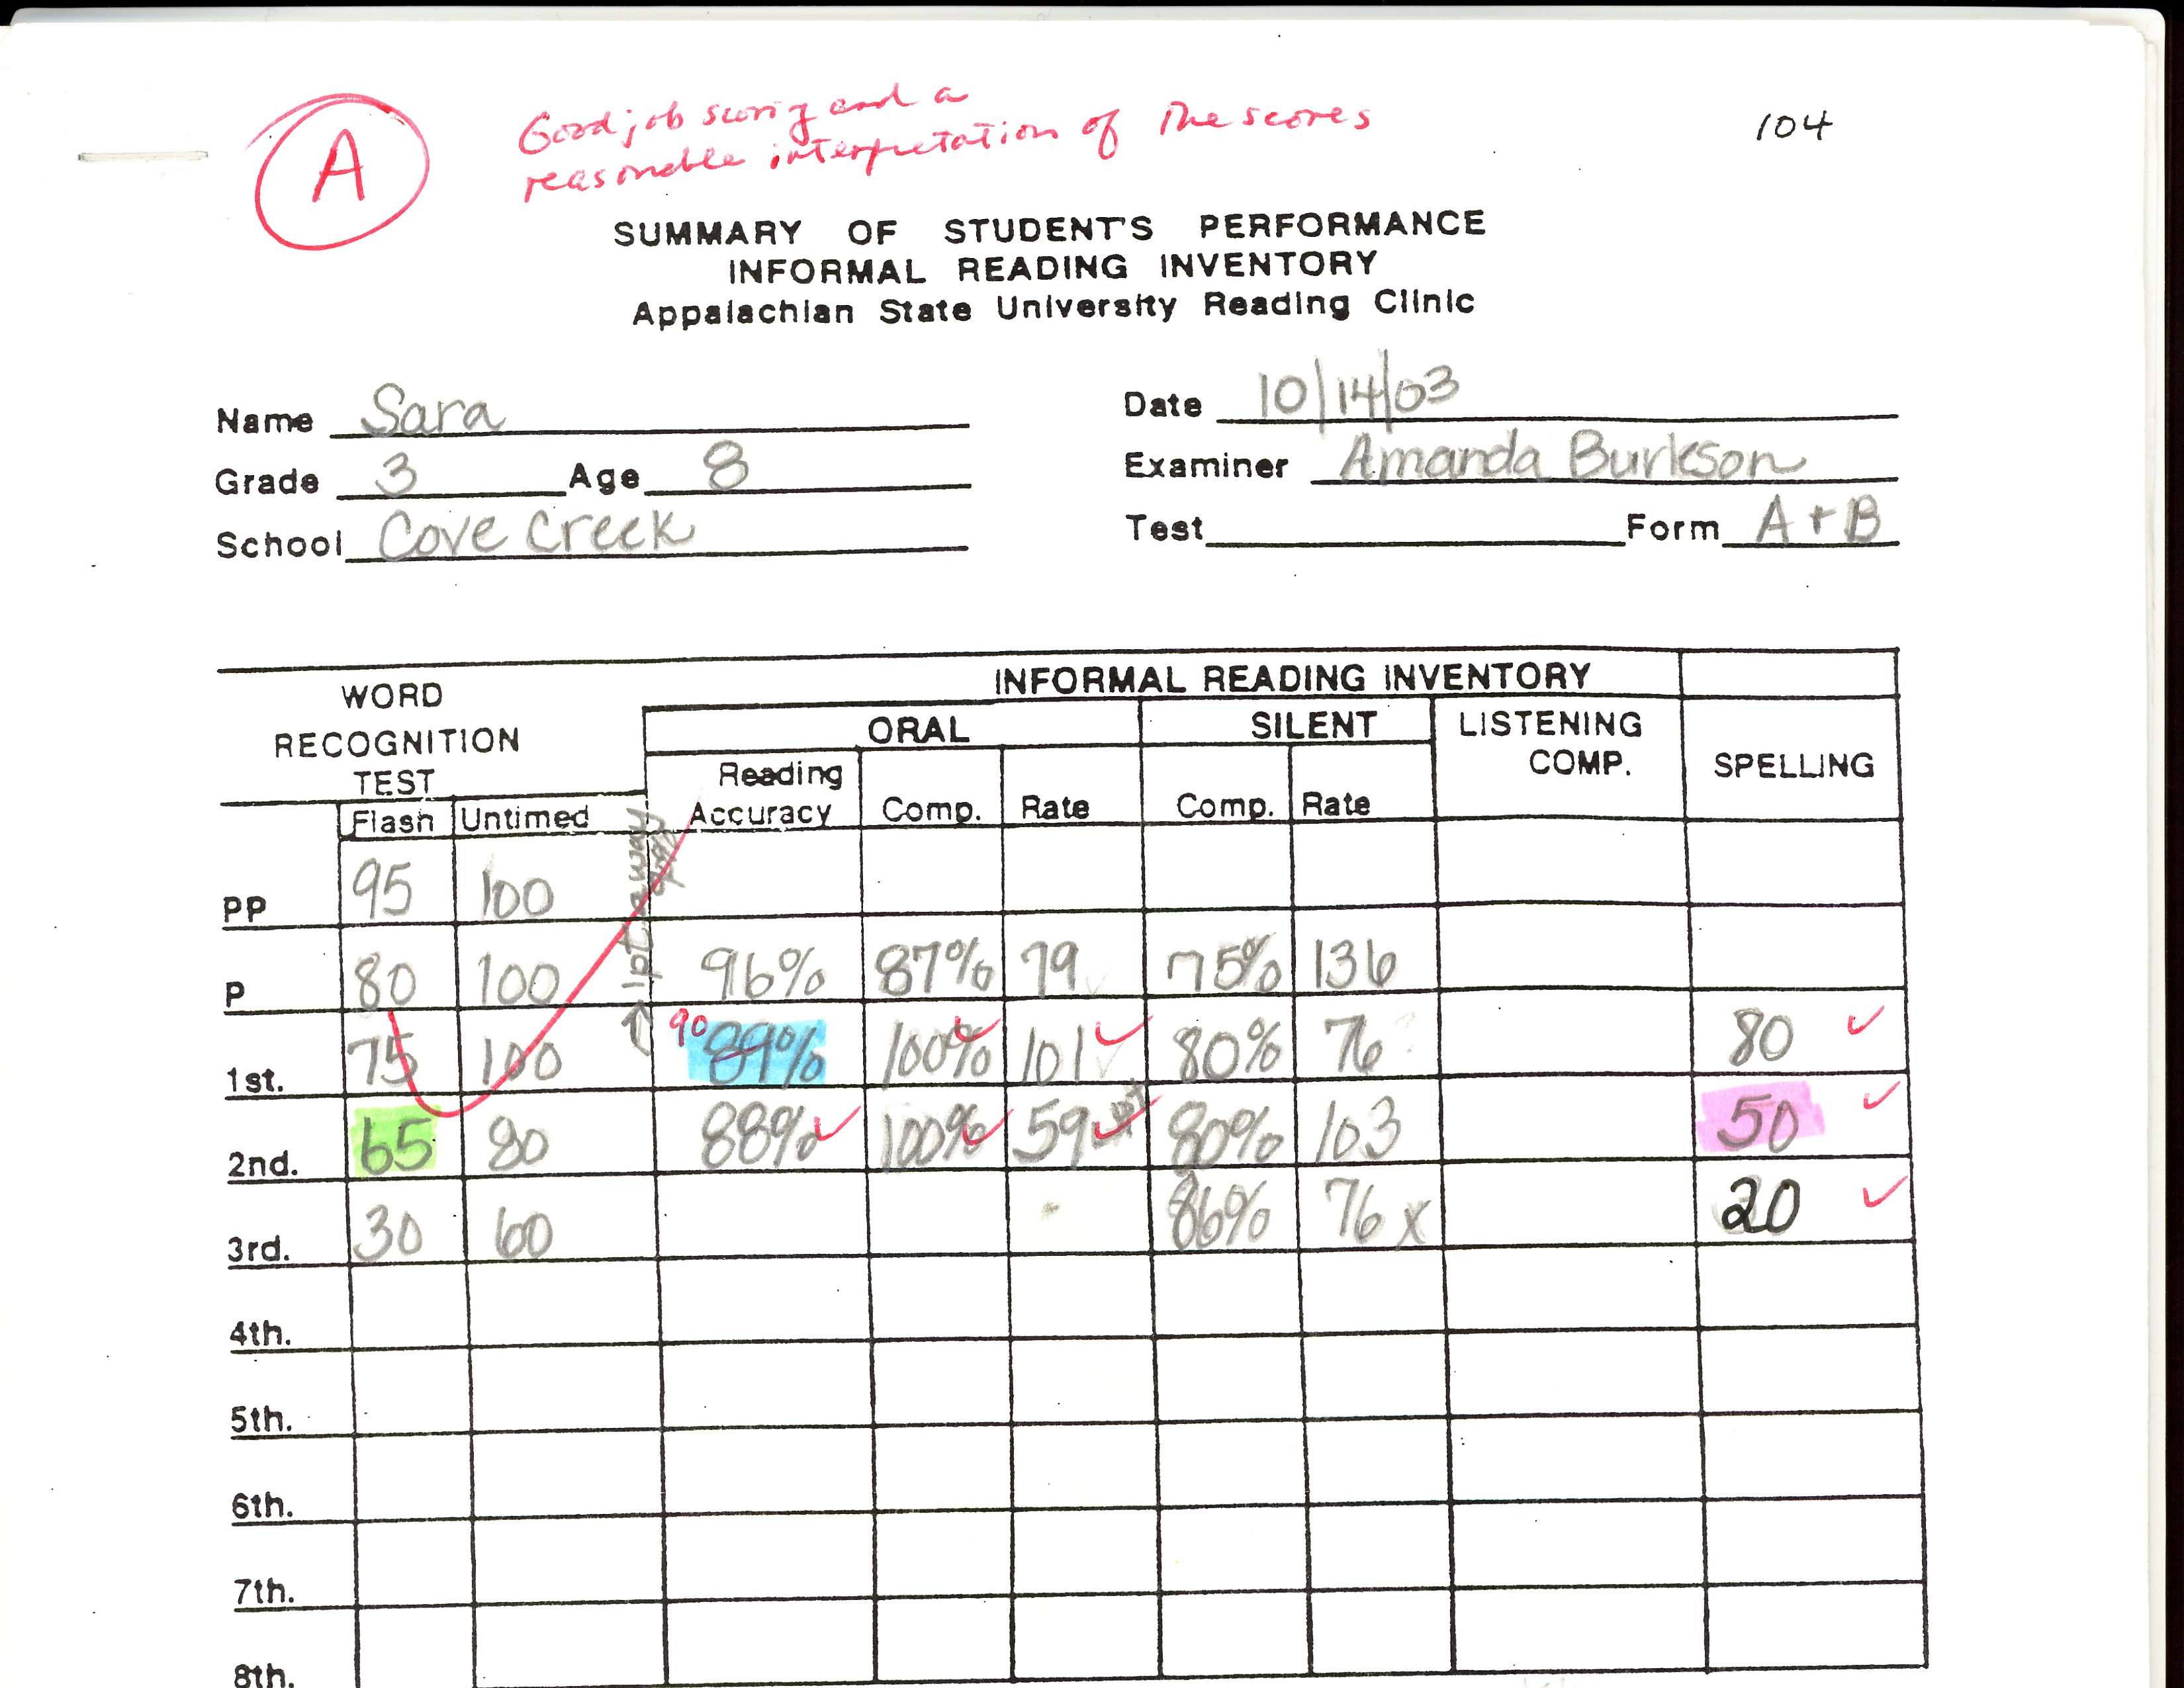 A
Good job scoring and a
reasonable interpretation of the scores
104
SUMMARY OF STUDENT'S PERFORMANCE
INFORMAL READING INVENTORY
Appalachian State University Reading Clinic
Name Sara Date 10/14/03
Grade 3 Age 8 Examiner Amanda Burleson
School Cove Creek Test Form A + B
INFORMAL READING INVENTORY
WORD RECOGNITION TEST
ORAL SILENT LISTENING COMP. SPELLING
Flash Untimed Reading Accuracy Comp. Rate Comp. Rate
PP 95 100
P 80 100 96% 87% 79 75% 136
1st. 75 100 90 89% 100% 101 80% 76 80
2nd. 65 80 88% 100% 59 80% 103 50
3rd. 30 60 86% 76 x 20
4th.
5th.
6th.
7th.
8th.